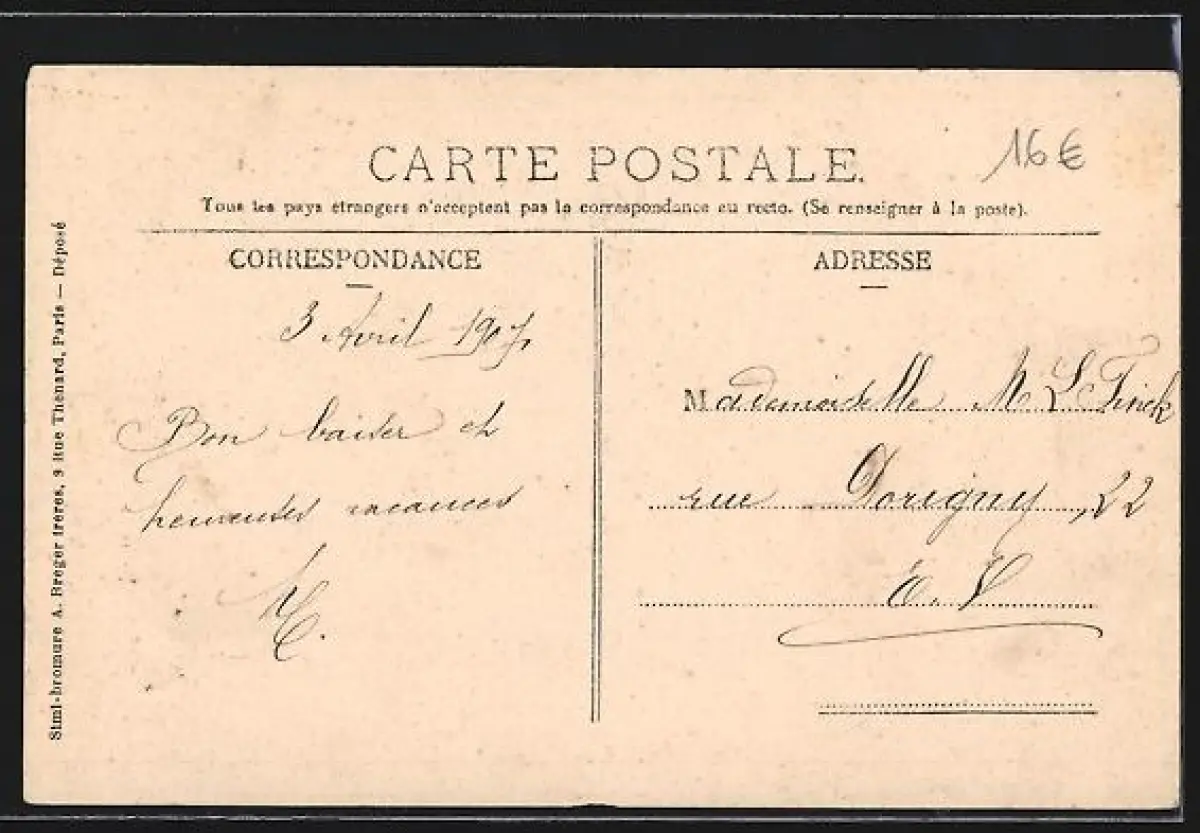 CARTE POSTALE.
16€
Tous les pays étrangers n'acceptent pas la correspondance au recto. (Se renseigner à la poste).
CORRESPONDANCE
3 Avril 1907
Bon baiser et
heureuses vacances
ADRESSE
Mademoiselle M L Finck
rue Dorigny, 22
E. V.
Simi-bromure A. Breger frères, 9 Rue Thenard, Paris — Déposé